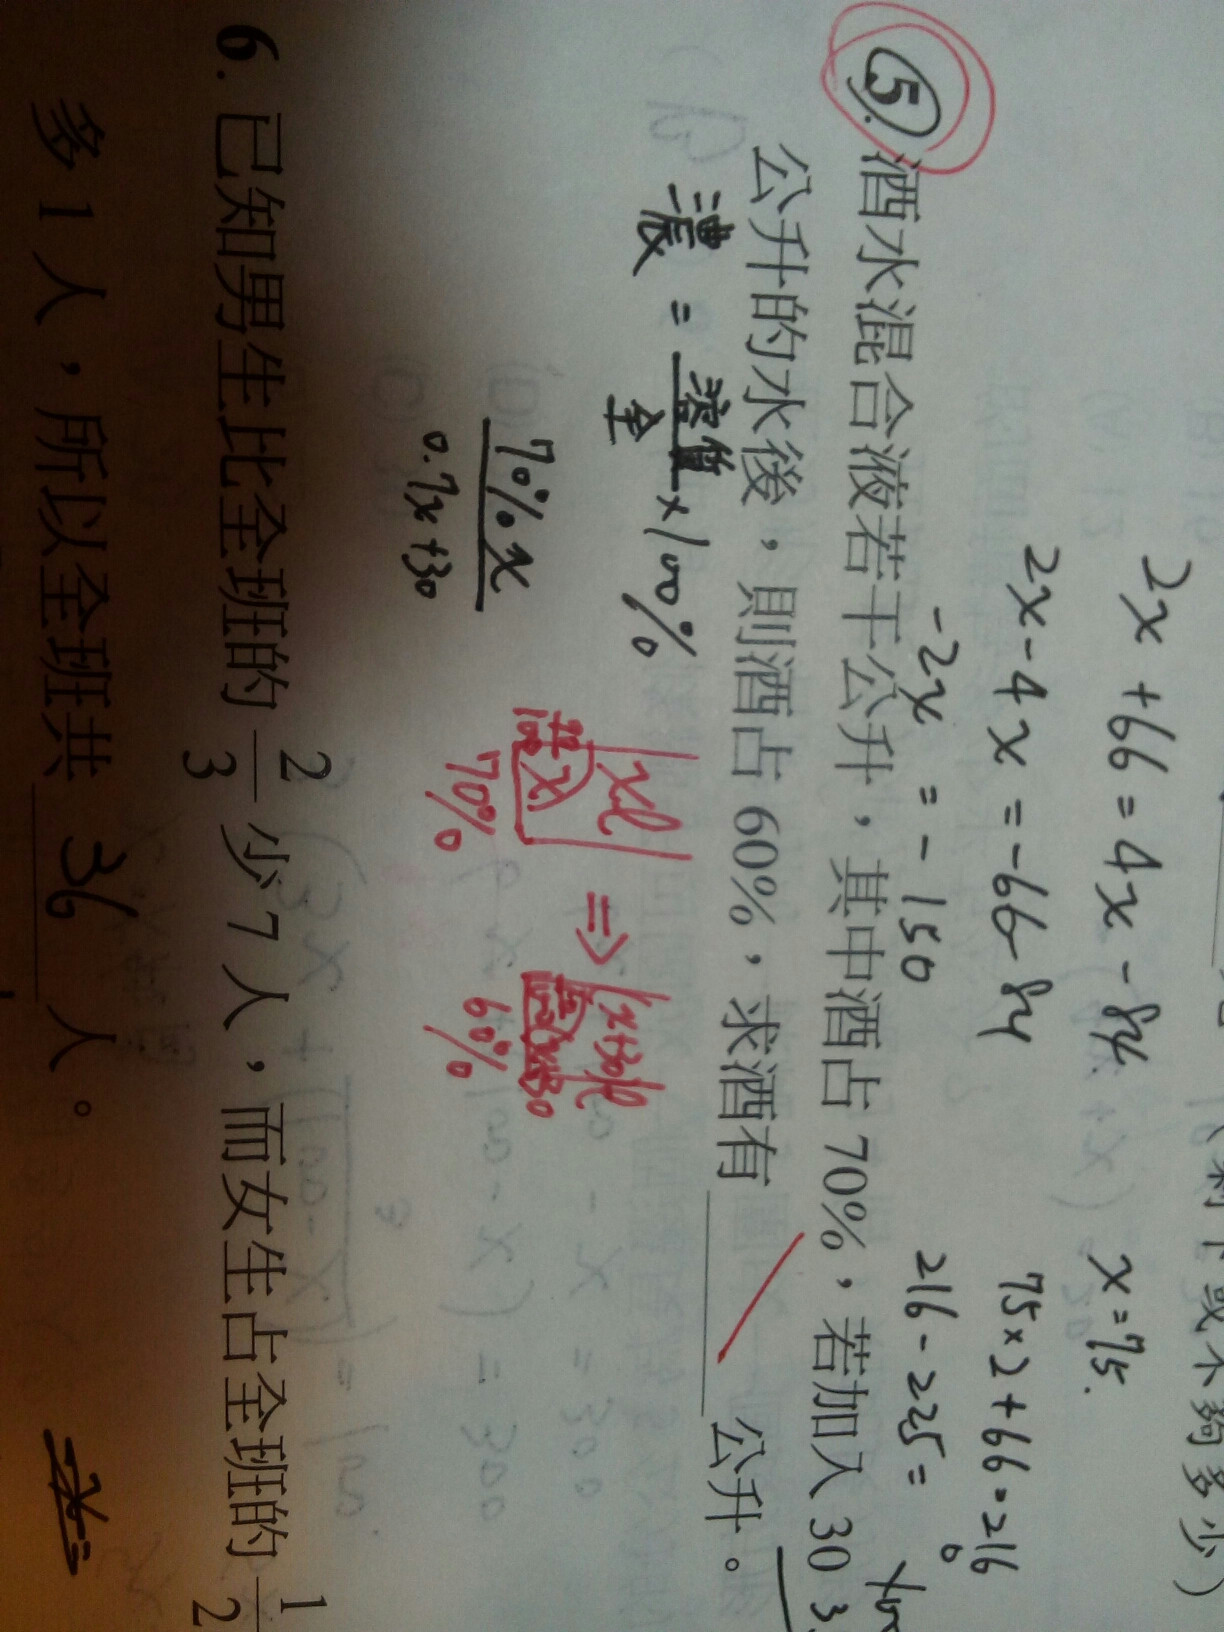 2x + 66 = 4x - 84.
x = 75.
2x - 4x = -66 - 84
75 × 2 + 66 = 216
-2x = -150
216 - 225 =
⑤. 酒水混合液若干公升，其中酒占 70%，若加入 30
公升的水後，則酒占 60%，求酒有 ＿＿＿ 公升。
濃 = 溶質/全 × 100%
70% x / 0.7x + 30
xl ⇒ (x+30)l
70/100 x
70% 60%
6. 已知男生比全班的 2/3 少 7 人，而女生占全班的 1/2
多 1 人，所以全班共 36 人。